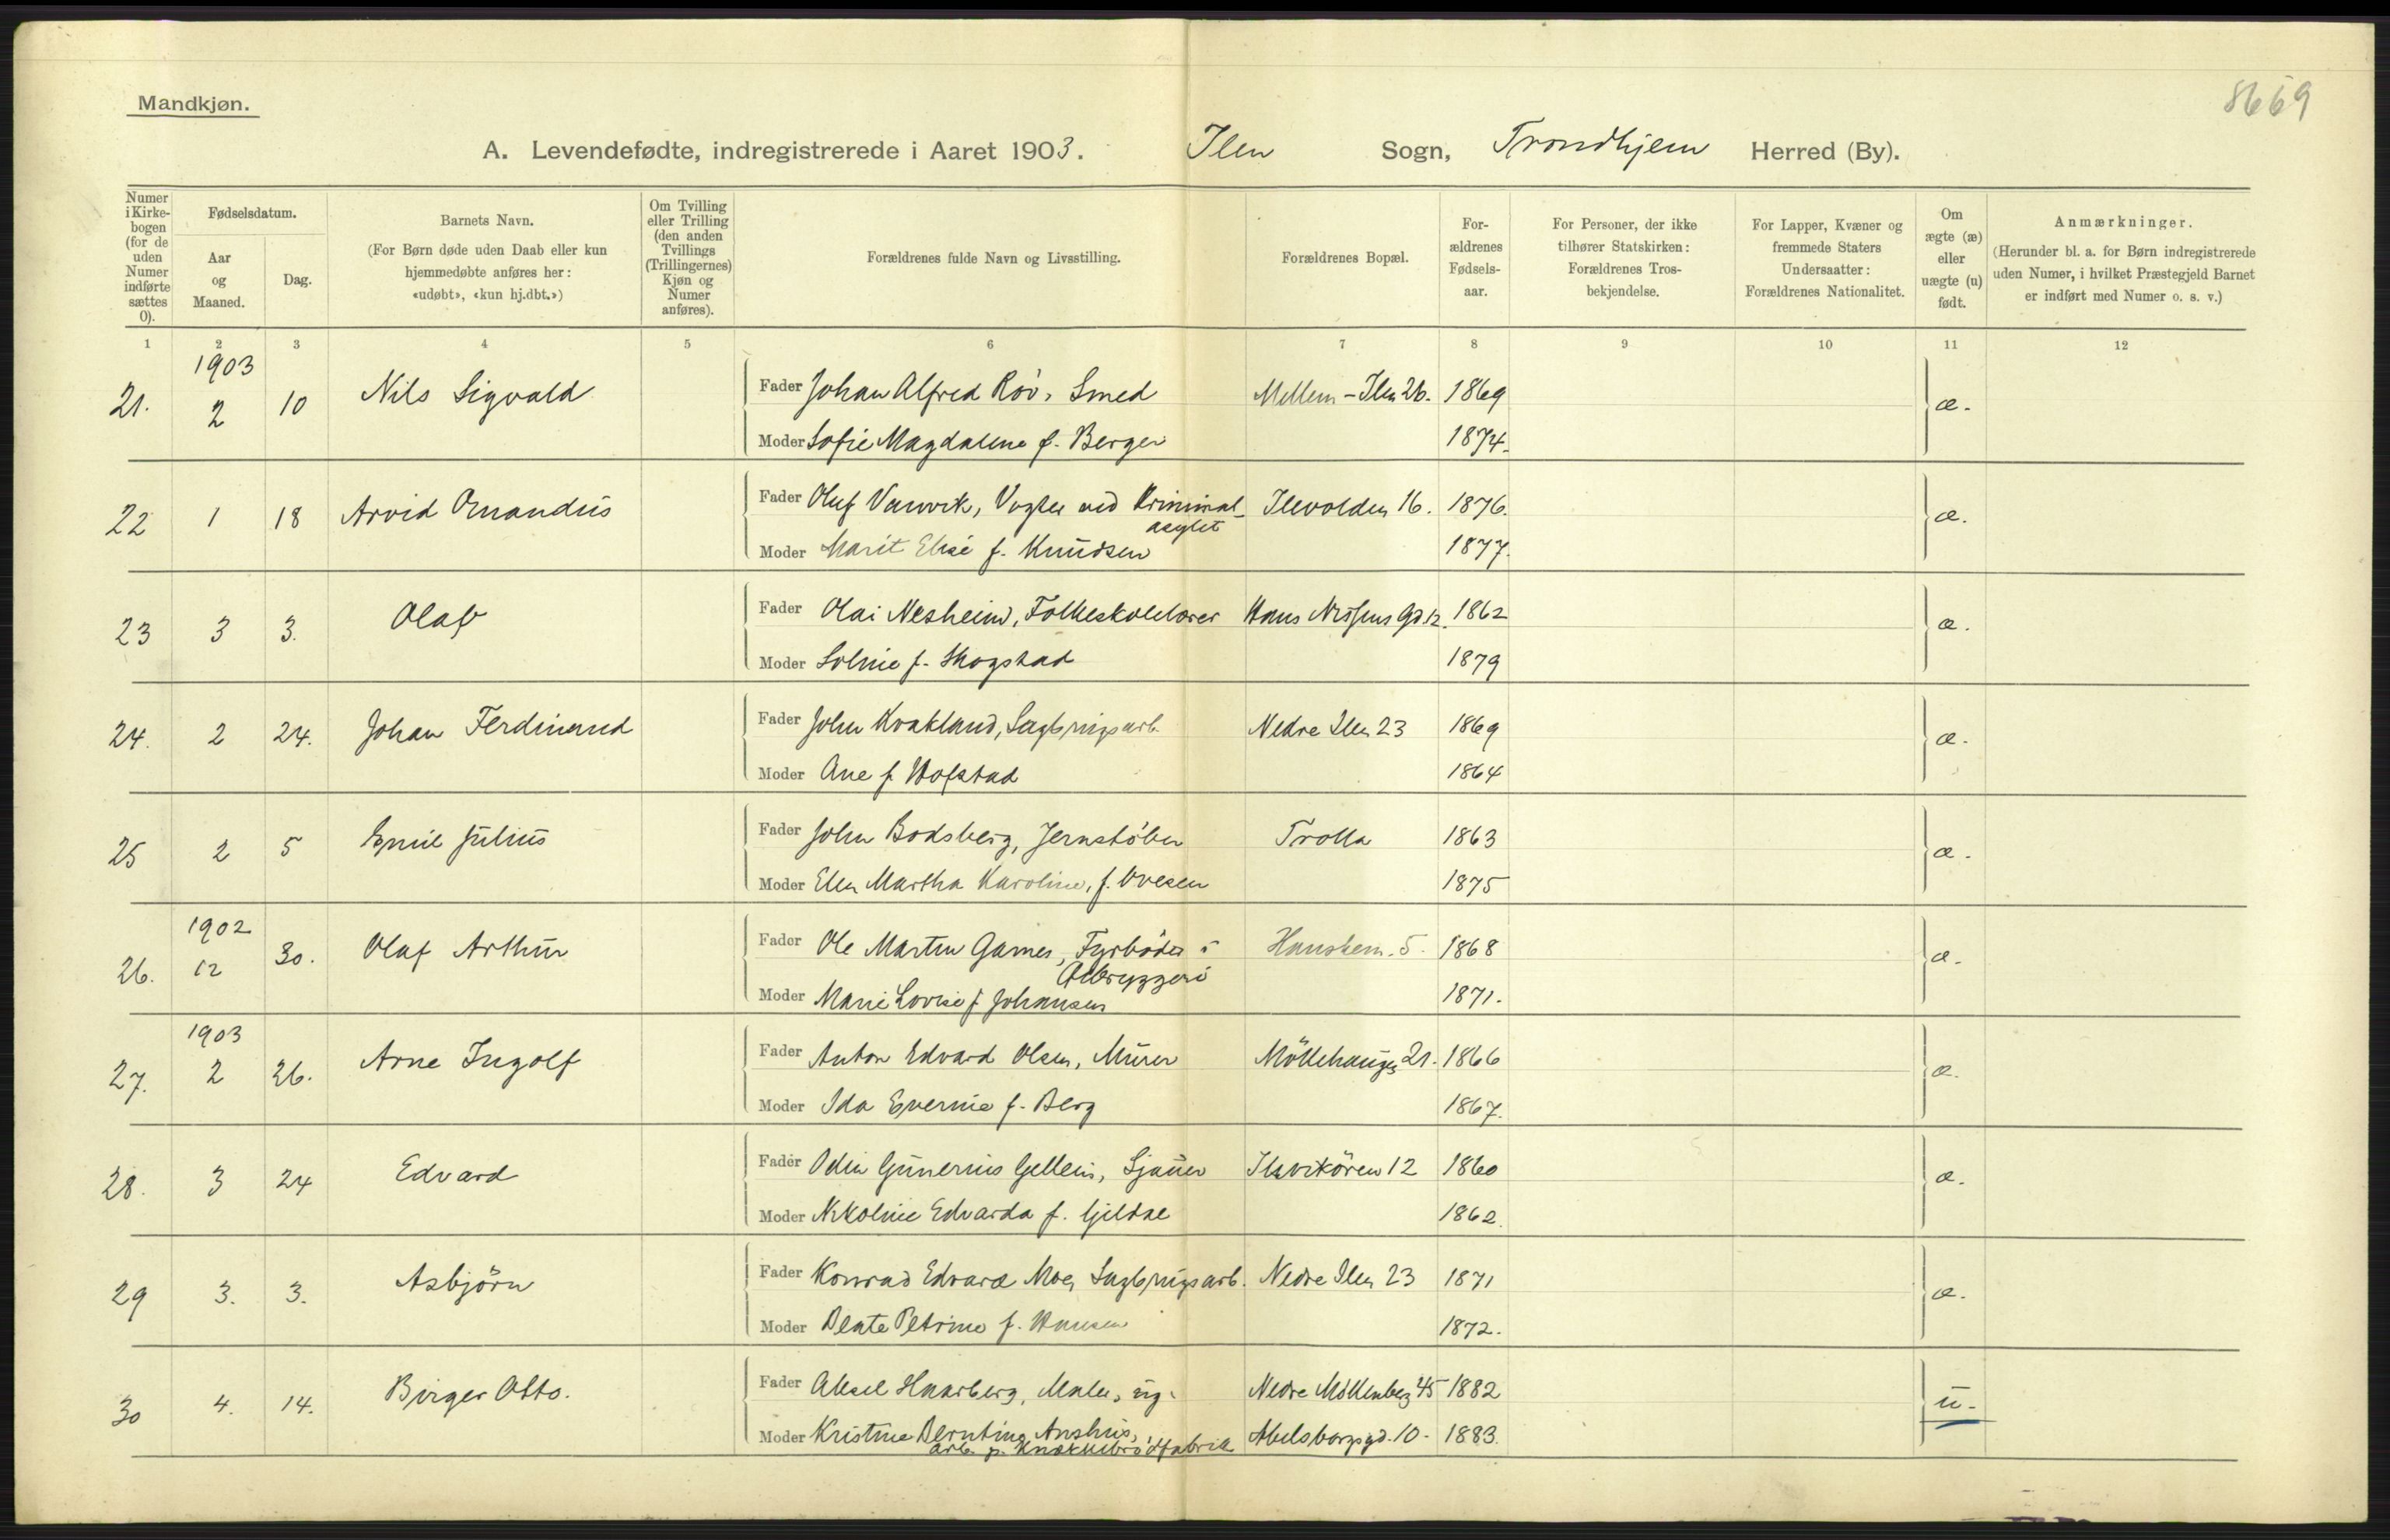 Mandkjøn.
8669
A. Levendefødte, indregistrerede i Aaret 1903. Ilen Sogn, Trondhjem Herred (By).
Numer i Kirke-bogen (for de uden Numer indførte sættes 0).
Fødselsdatum.
Aar og Maaned.
Dag.
Barnets Navn.
(For Børn døde uden Daab eller kun hjemmedøbte anføres her: «udøbt», «kun hj.dbt.»)
Om Tvilling eller Trilling (den anden Tvillings (Trillingernes) Kjøn og Numer anføres).
Forældrenes fulde Navn og Livsstilling.
Forældrenes Bopæl.
For-ældrenes Fødsels-aar.
For Personer, der ikke tilhører Statskirken: Forældrenes Tros-bekjendelse.
For Lapper, Kvæner og fremmede Staters Undersaatter: Forældrenes Nationalitet.
Om ægte (æ) eller uægte (u) født.
Anmærkninger.
(Herunder bl. a. for Børn indregistrerede uden Numer, i hvilket Præstegjeld Barnet er indført med Numer o. s. v.)
1 2 3 4 5 6 7 8 9 10 11 12
1903
21. 2 10 Nils Sigvald Fader Johan Alfred Röv, Smed Mellem-Ilen 26. 1869 æ.
Moder Sofie Magdalena f. Berger 1874.
22 1 18 Arvid Fader Oluf Vanvik, Vogter ved Kriminal- Ilevolden 16. 1876. æ.
asylet
Moder Marit Elise f. Knudsen 1877.
23 3 3. Olaf Fader Olai Nesheim, Folkeskolelærer Hans Nissens Gd. 12. 1862 æ.
Moder Solvie f. Skogstad 1879
24. 2 24. Johan Ferdinand Fader John Kvakland, Sagbrugsarb. Nedre Ilen 23 1869 æ.
Moder Ane f. Hofstad 1864
25 2 5 Emil Julius Fader John Bodsberg, Jernstöber Trolla 1863 æ.
Moder Elen Martha Karoline, f. Ovesen 1875
1902
26. 12 30. Olaf Arthur Fader Ole Martin Garnes, Fyrböder i 5. 1868 æ.
Ölbryggeri
Moder Marie Lovise f. Johansen 1871.
1903
27. 2 26. Arne Ingolf Fader Anton Edvard Olsen, Murer Möllehaugen 21. 1866 æ.
Moder Ida Evernie f. Berg 1867.
28. 3 24 Edvard Fader Odin Gunerius Gellein, Sjauer Ilsvikören 12 1860 æ.
Moder Nikoline Edvarda f. Gjeldse 1862.
29 3. 3. Asbjörn Fader Konrad Edvard Moe, Sagbrugsarb. Nedre Ilen 23 1871 æ.
Moder Beate Petrine f. Hansen 1872.
30 4. 14. Birger Otto. Fader Aksel Haarberg, Maler, ug. Nedre Möllenberg 45 1882 u.
Moder Kristine Berntine Aushus, Abelsborgsgd. 10. 1883.
arb. p. Knækkebrödfabrik